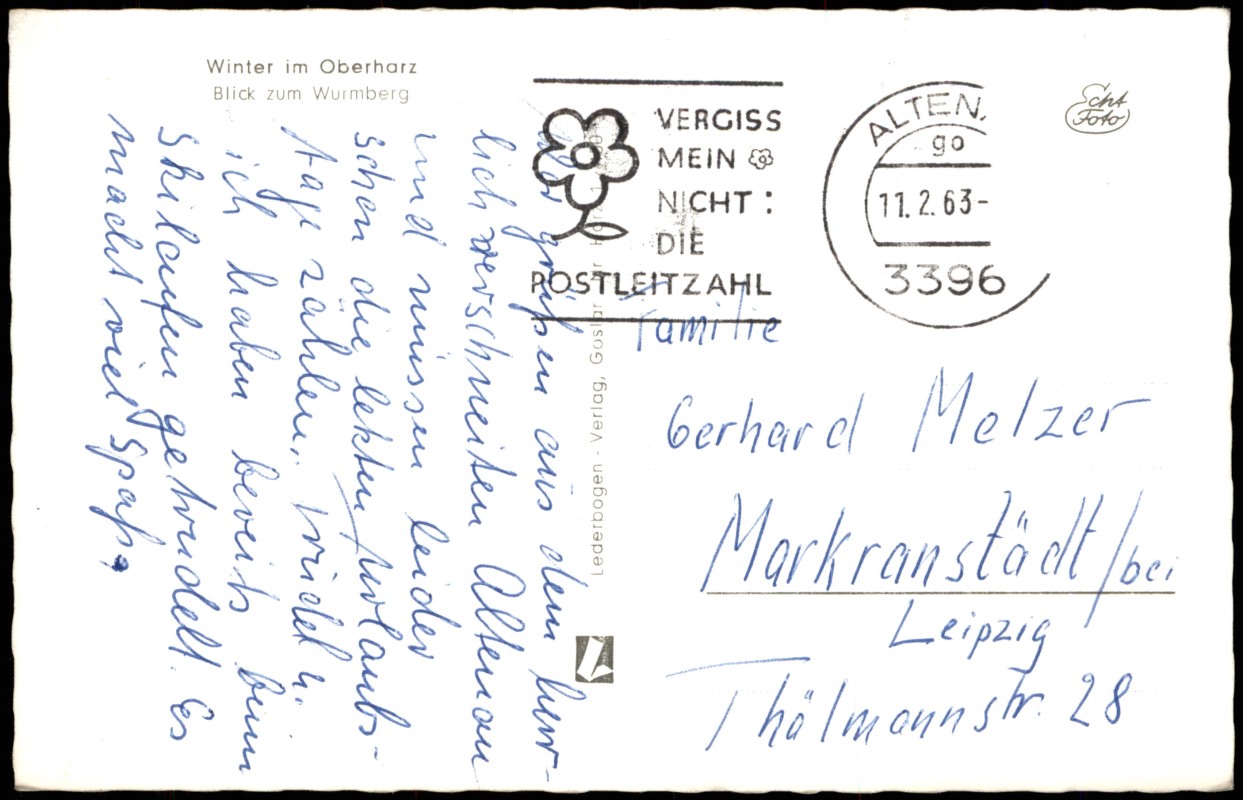 Winter im Oberharz
Blick zum Wurmberg
VERGISS
MEIN
NICHT:
DIE
POSTLEITZAHL
ALTEN
go
11.2.63-
3396
Echt
Foto
Wir grüßen aus dem herr-
lich verschneiten Altenau
und müssen leider
schon die letzten Urlaubs-
tage zählen.
ich haben bereits beim
Skilaufen getrudelt. Es
macht viel Spaß.
Lederbogen - Verlag, Goslar
Familie
Gerhard Melzer
Markranstädt/bei
Leipzig
Thälmannstr. 28